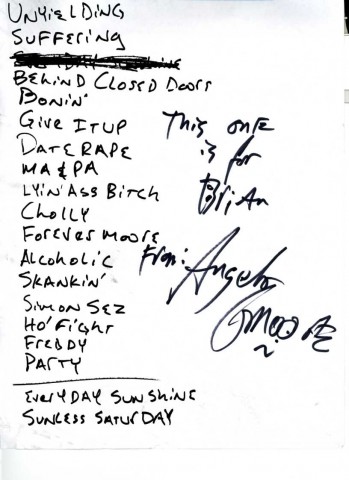 UNYIELDING
SUFFERING
EVERYDAY SUNSHINE
BEHIND CLOSED DOORS
BONIN'
GIVE IT UP
DATE RAPE
MA & PA
LYIN' ASS BITCH
CHOLLY
FOREVER MOORE
ALCOHOLIC
SKANKIN'
SIMON SEZ
HO' FIGHT
FREDDY
PARTY
EVERYDAY SUNSHINE
SUNLESS SATURDAY
THIS ONE
is for
BRiAN
From: Angelo
Moore